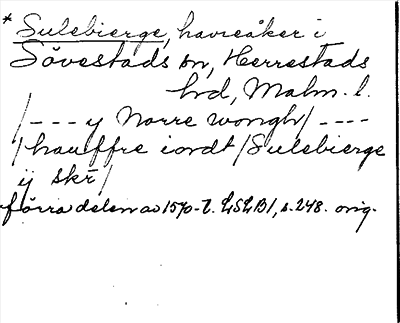 * Sulebierge, havreåker i
Sövestads sn, Herrestads
hd, Malm. l.
/--- y Norre wongh/ ----
/hauffre iordt/Sulebierge
ÿ skr/
förra delen av 1570-t. LSLB1, s. 248. orig.